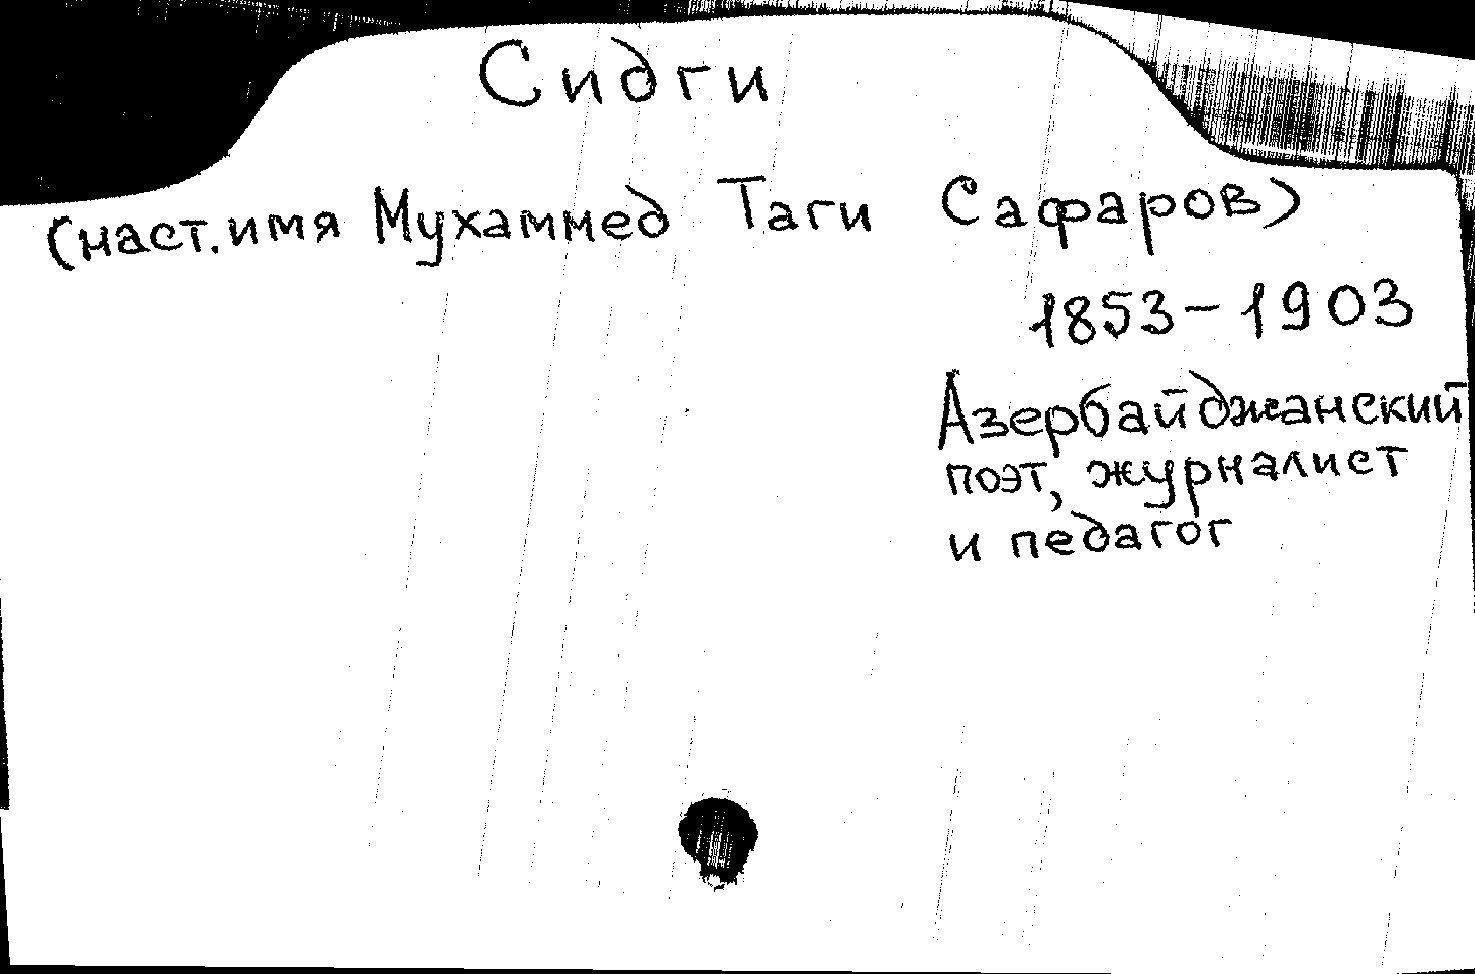 Сидги
(наст.имя Мухаммед Таги Сафаров)
1853-1903
Азербайджанский
поэт, журналист
и педагог